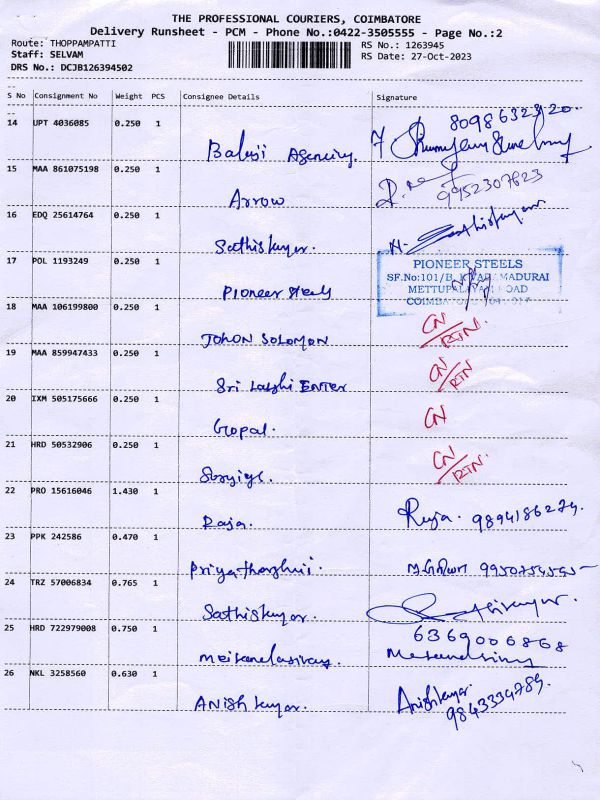 THE PROFESSIONAL COURIERS, COIMBATORE
Delivery Runsheet - PCM - Phone No.:0422-3505555 - Page No.:2
Route: THOPPAMPATTI
Staff: SELVAM
DRS No.: DCJB126394502
RS No.: 1263945
RS Date: 27-Oct-2023
S No Consignment No Weight PCS Consignee Details Signature
14 UPT 4036085 0.250 1
8098632320.
15 MAA 861075198 0.250 1 Arrow
9952307623
16 EDQ 25614764 0.250 1 Sathiskumar.
17 POL 1193249 0.250 1 Pioneer Steels
PIONEER STEELS
SF.No:101/B,
METTUPALAYAM ROAD
18 MAA 106199800 0.250 1 JOHON SOLOMON CN/RTN.
19 MAA 859947433 0.250 1 Sri Lakshi ENTER CN/RTN
20 IXM 505175666 0.250 1 Gopal. CN
21 HRD 50532906 0.250 1 CN/RTN.
22 PRO 15616046 1.430 1 Raja. Raja. 9894186279.
23 PPK 242586 0.470 1 Priyatharshni.
24 TRZ 57006834 0.765 1 Sathiskumar.
25 HRD 722979008 0.750 1
6369006868
26 NKL 3258560 0.630 1 Anish kumar. Anishkumar.
9843334789.